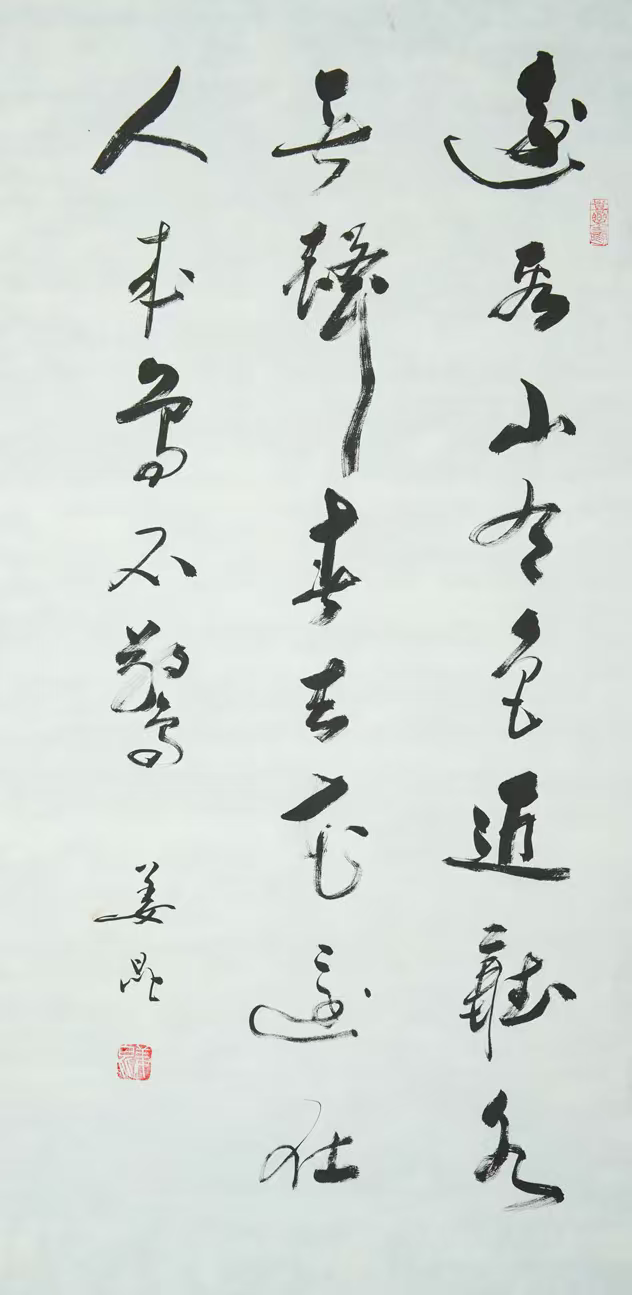 遠看山有色近聽水
無聲春去花還在
人來鳥不驚
姜昆